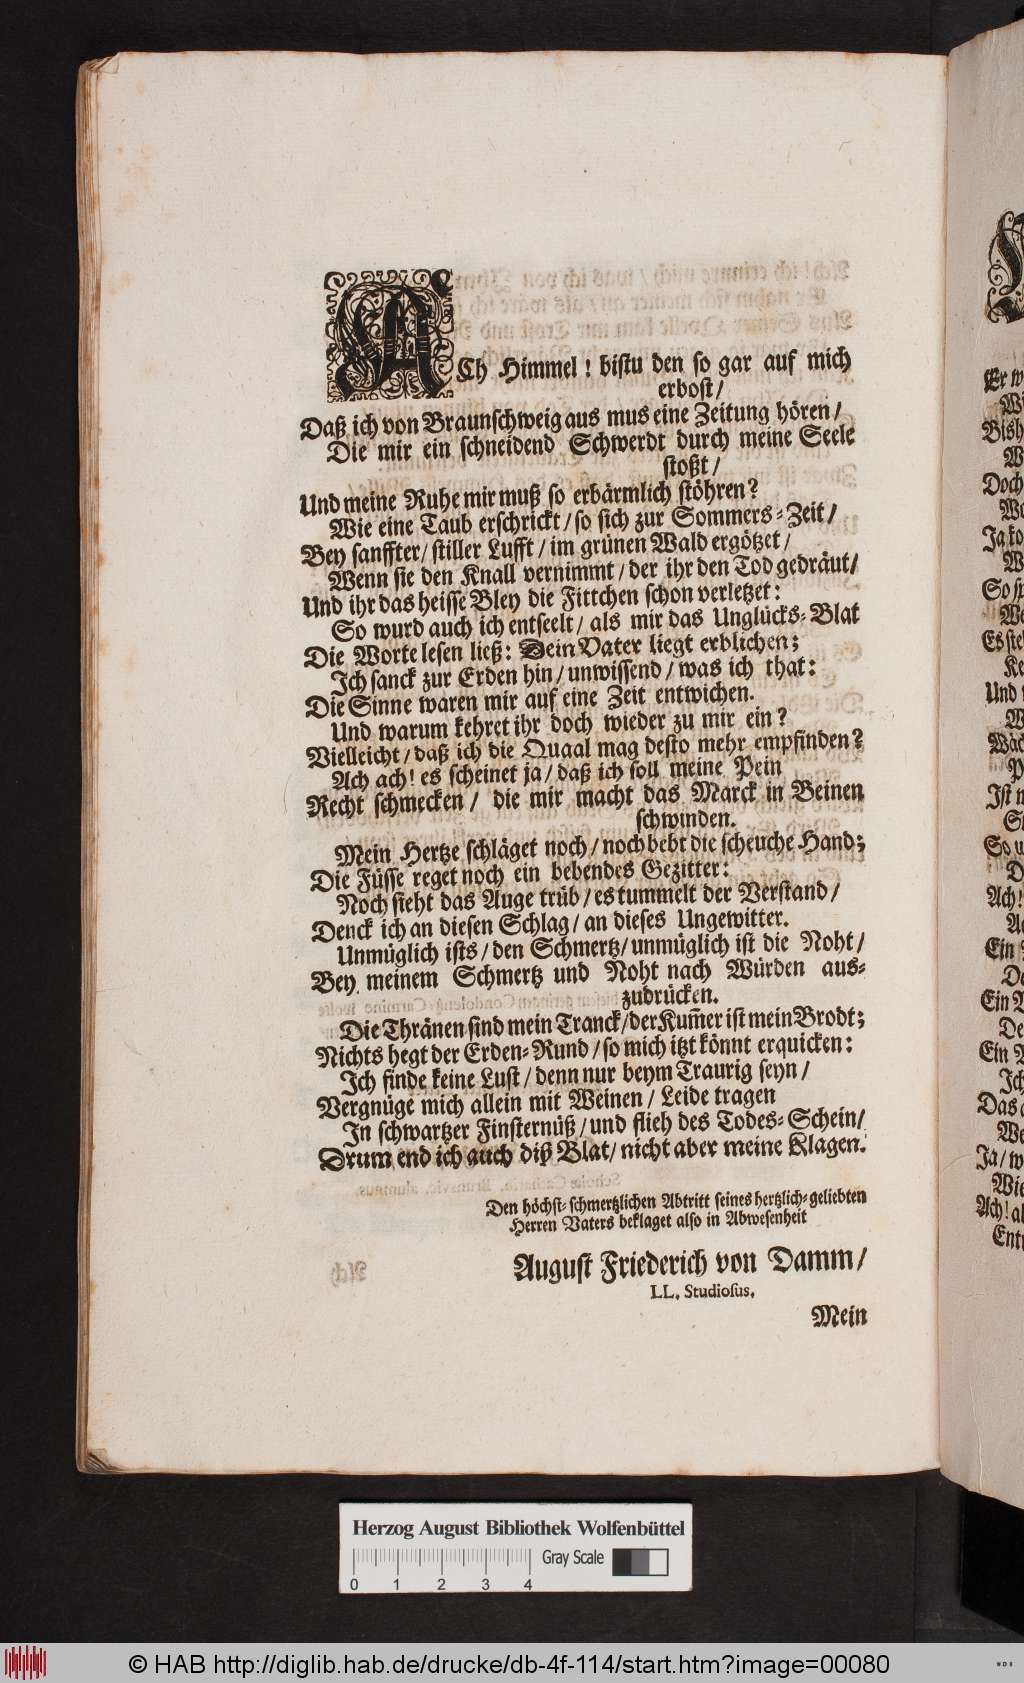 ACh Himmel! bistu den so gar auf mich
erbost/
Daß ich von Braunschweig aus mus eine Zeitung hören/
Die mir ein schneidend Schwerdt durch meine Seele
stoßt/
Und meine Ruhe mir muß so erbärmlich stöhren?
Wie eine Taub erschrickt/ so sich zur Sommers-Zeit/
Bey sanffter/ stiller Lufft/ im grünen Wald ergötzet/
Wenn sie den Knall vernimmt/ der ihr den Tod gedräut/
Und ihr das heisse Bley die Fittchen schon verletzet:
So wurd auch ich entseelt/ als mir das Unglücks-Blat
Die Worte lesen ließ: Dein Vater liegt erblichen;
Ich sanck zur Erden hin/ unwissend/ was ich that:
Die Sinne waren mir auf eine Zeit entwichen.
Und warum kehret ihr doch wieder zu mir ein?
Vielleicht/ daß ich die Quaal mag desto mehr empfinden?
Ach ach! es scheinet ja/ daß ich soll meine Pein
Recht schmecken/ die mir macht das Marck in Beinen
schwinden.
Mein Hertze schläget noch/ noch bebt die scheuche Hand;
Die Füsse reget noch ein bebendes Gezitter:
Noch sieht das Auge trüb/ es tummelt der Verstand/
Denck ich an diesen Schlag/ an dieses Ungewitter.
Unmüglich ists/ den Schmertz/ unmüglich ist die Noht/
Bey meinem Schmertz und Noht nach Würden aus-
zudrücken.
Die Thränen sind mein Tranck/ der Kum̃er ist mein Brodt;
Nichts hegt der Erden-Rund/ so mich itzt könnt erquicken:
Ich finde keine Lust/ denn nur beym Traurig seyn/
Vergnüge mich allein mit Weinen/ Leide tragen
In schwartzer Finsternüß/ und flieh des Todes-Schein/
Drum end ich auch diß Blat/ nicht aber meine Klagen.
Den höchst-schmertzlichen Abtritt seines hertzlich-geliebten
Herren Vaters beklaget also in Abwesenheit
August Friederich von Damm/
LL. Studiosus.
Mein
Herzog August Bibliothek Wolfenbüttel
Gray Scale
0 1 2 3 4
© HAB http://diglib.hab.de/drucke/db-4f-114/start.htm?image=00080